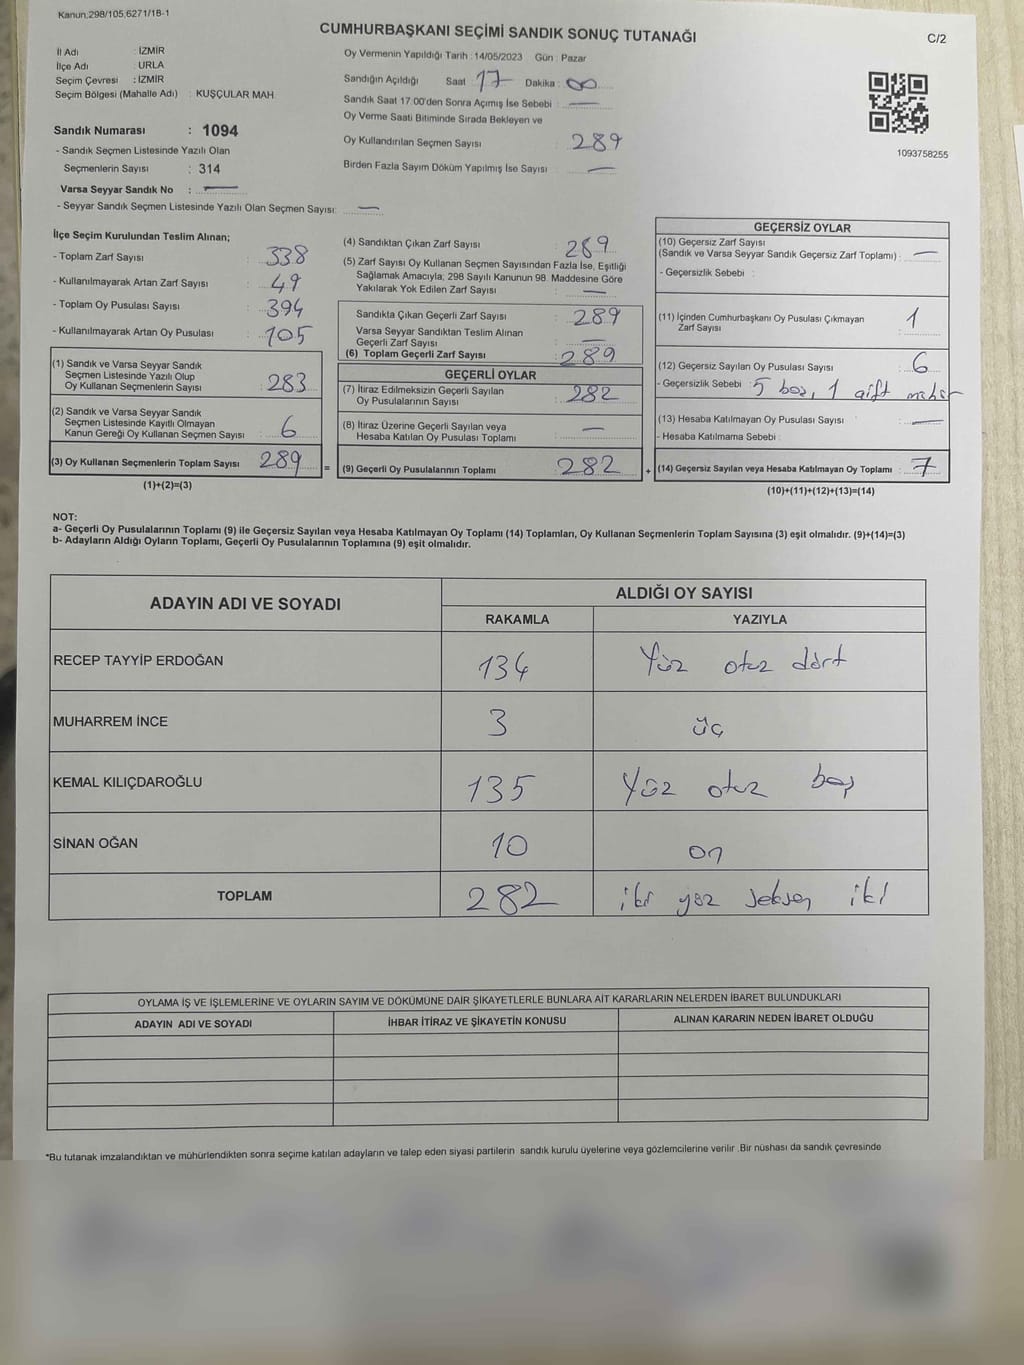 Kanun;298/105,6271/18-1
CUMHURBAŞKANI SEÇİMİ SANDIK SONUÇ TUTANAĞI
C/2
İl Adı : İZMİR
İlçe Adı : URLA
Seçim Çevresi : İZMİR
Seçim Bölgesi (Mahalle Adı) : KUŞÇULAR MAH.
Sandık Numarası : 1094
- Sandık Seçmen Listesinde Yazılı Olan
Seçmenlerin Sayısı : 314
Varsa Seyyar Sandık No : —
- Seyyar Sandık Seçmen Listesinde Yazılı Olan Seçmen Sayısı: —
Oy Vermenin Yapıldığı Tarih : 14/05/2023 Gün : Pazar
Sandığın Açıldığı Saat : 17 Dakika : 00
Sandık Saat 17:00'den Sonra Açımış İse Sebebi : —
Oy Verme Saati Bitiminde Sırada Bekleyen ve
Oy Kullandırılan Seçmen Sayısı : 289
Birden Fazla Sayım Döküm Yapılmış İse Sayısı : —
1093758255
İlçe Seçim Kurulundan Teslim Alınan;
- Toplam Zarf Sayısı : 338
- Kullanılmayarak Artan Zarf Sayısı : 49
- Toplam Oy Pusulası Sayısı : 394
- Kullanılmayarak Artan Oy Pusulası : 105
(1) Sandık ve Varsa Seyyar Sandık
Seçmen Listesinde Yazılı Olup
Oy Kullanan Seçmenlerin Sayısı : 283
(2) Sandık ve Varsa Seyyar Sandık
Seçmen Listesinde Kayıtlı Olmayan
Kanun Gereği Oy Kullanan Seçmen Sayısı : 6
(3) Oy Kullanan Seçmenlerin Toplam Sayısı 289
(1)+(2)=(3)
(4) Sandıktan Çıkan Zarf Sayısı : 289
(5) Zarf Sayısı Oy Kullanan Seçmen Sayısından Fazla İse, Eşitliği
Sağlamak Amacıyla; 298 Sayılı Kanunun 98. Maddesine Göre
Yakılarak Yok Edilen Zarf Sayısı : —
Sandıkta Çıkan Geçerli Zarf Sayısı : 289
Varsa Seyyar Sandıktan Teslim Alınan
Geçerli Zarf Sayısı : —
(6) Toplam Geçerli Zarf Sayısı : 289
GEÇERLİ OYLAR
(7) İtiraz Edilmeksizin Geçerli Sayılan
Oy Pusulalarının Sayısı : 282
(8) İtiraz Üzerine Geçerli Sayılan veya
Hesaba Katılan Oy Pusulası Toplamı : —
= (9) Geçerli Oy Pusulalarının Toplamı : 282
GEÇERSİZ OYLAR
(10) Geçersiz Zarf Sayısı
(Sandık ve Varsa Seyyar Sandık Geçersiz Zarf Toplamı) : —
- Geçersizlik Sebebi :
(11) İçinden Cumhurbaşkanı Oy Pusulası Çıkmayan
Zarf Sayısı : 1
(12) Geçersiz Sayılan Oy Pusulası Sayısı : 6
- Geçersizlik Sebebi : 5 boş, 1 çift mühür
(13) Hesaba Katılmayan Oy Pusulası Sayısı : —
- Hesaba Katılmama Sebebi :
+ (14) Geçersiz Sayılan veya Hesaba Katılmayan Oy Toplamı : 7
(10)+(11)+(12)+(13)=(14)
NOT:
a- Geçerli Oy Pusulalarının Toplamı (9) ile Geçersiz Sayılan veya Hesaba Katılmayan Oy Toplamı (14) Toplamları, Oy Kullanan Seçmenlerin Toplam Sayısına (3) eşit olmalıdır. (9)+(14)=(3)
b- Adayların Aldığı Oyların Toplamı, Geçerli Oy Pusulalarının Toplamına (9) eşit olmalıdır.
ADAYIN ADI VE SOYADI
ALDIĞI OY SAYISI
RAKAMLA YAZIYLA
RECEP TAYYİP ERDOĞAN 134 Yüz otuz dört
MUHARREM İNCE 3 üç
KEMAL KILIÇDAROĞLU 135 Yüz otuz beş
SİNAN OĞAN 10 on
TOPLAM 282 iki yüz seksen iki
OYLAMA İŞ VE İŞLEMLERİNE VE OYLARIN SAYIM VE DÖKÜMÜNE DAİR ŞİKAYETLERLE BUNLARA AİT KARARLARIN NELERDEN İBARET BULUNDUKLARI
ADAYIN ADI VE SOYADI İHBAR İTİRAZ VE ŞİKAYETİN KONUSU ALINAN KARARIN NEDEN İBARET OLDUĞU
*Bu tutanak imzalandıktan ve mühürlendikten sonra seçime katılan adayların ve talep eden siyasi partilerin sandık kurulu üyelerine veya gözlemcilerine verilir .Bir nüshası da sandık çevresinde